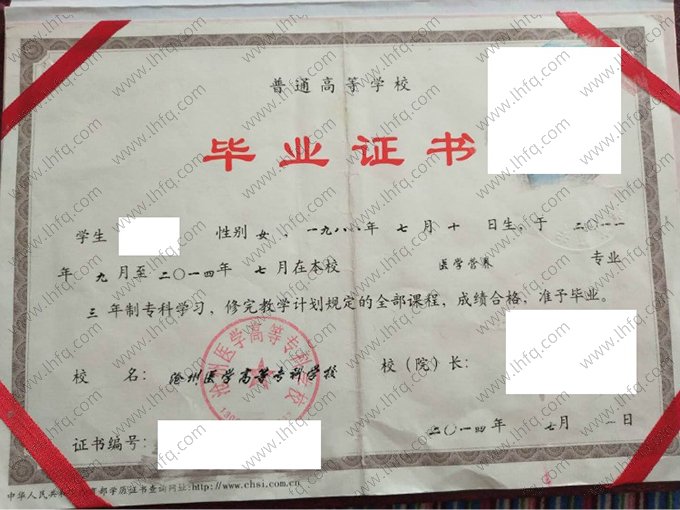 普通高等学校
毕业证书
学生 性别 女 ，一九八八年 七 月 十 日生，于 二〇一一
年 九 月至 二〇一四年 七 月在本校 医学营养 专业
三 年制专科学习，修完教学计划规定的全部课程，成绩合格，准予毕业。
校 名： 沧州医学高等专科学校 校（院）长：
沧州医学高等专科学校
证书编号： 二〇一四年 七月 一日
中华人民共和国教育部学历证书查询网址:http://www.chsi.com.cn
www.lhfq.com